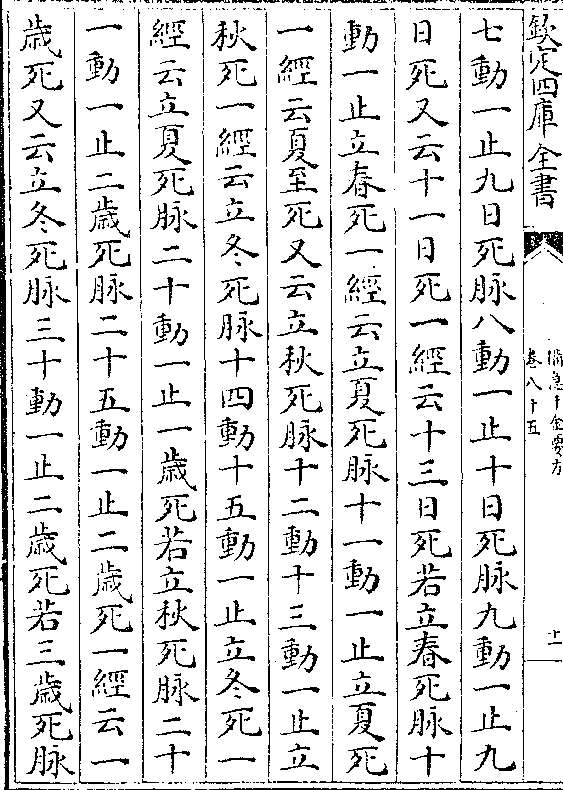 欽定四庫全書
備急千金要方
卷八十五
七動一止九日死脉八動一止十日死脉九動一止九
日死又云十一日死一經云十三日死若立春死脉十
動一止立春死一經云立夏死脉十一動一止立夏死
一經云夏至死又云立秋死脉十二動十三動一止立
秋死一經云立冬死脉十四動十五動一止立冬死一
經云立夏死脉二十動一止一歲死若立秋死脉二十
一動一止二歲死脉二十五動一止二歲死一經云一
歲死又云立冬死脉三十動一止二歲死若三歲死脉